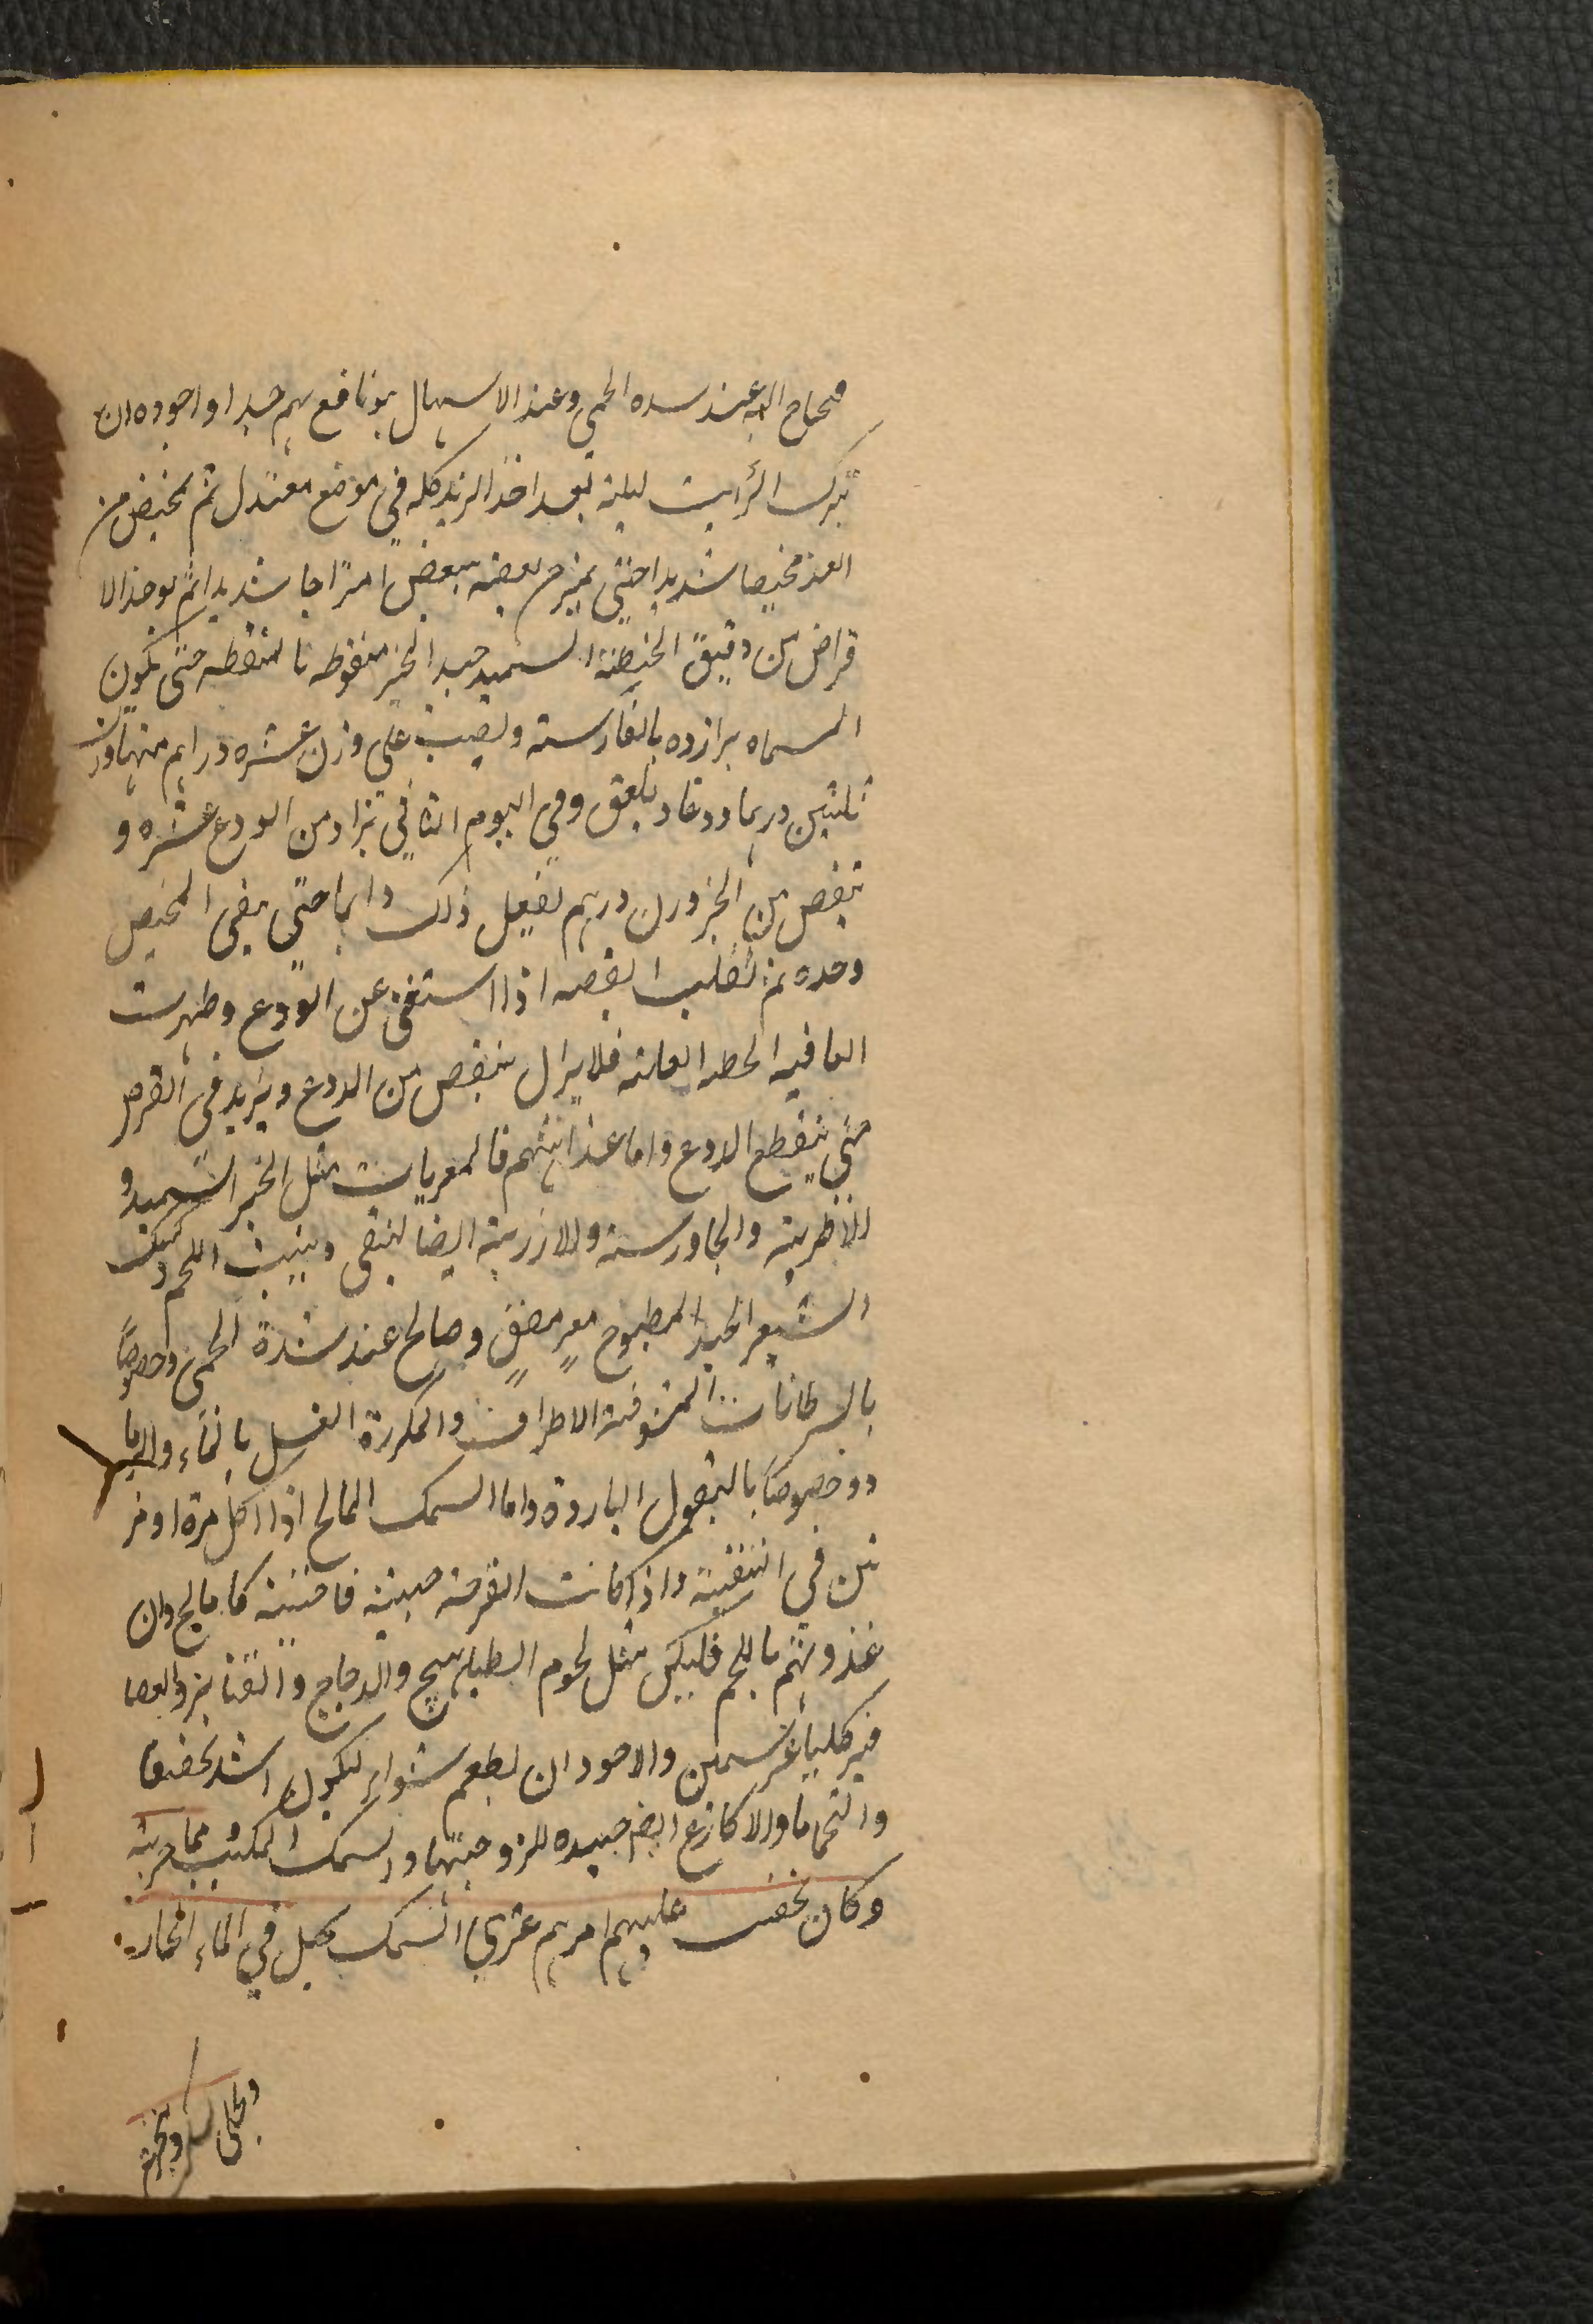 محتاج اليه عند سده الحمى وعند الاسهال هو نافع لهم جيدا واجوده ان
تترك الرأيب ليلة بعد اخذ الزبد كله في موضع معتدل ثم يمخيض من
الغد مخيضا شديدا حتى يمتزج بعضه ببعض امتزاجا شديدا ثم يوخذ الا
قراض من دقيق الحنطة السميد جيد الخبز منقوطه بالمنقطه حتى تكون
المسماه برازده بالفارسته ويصب على وزن عشره دراهم منها وزن
ثلثين درهما دوغا ويلعق وفي اليوم الثاني تزاد من الودع عشره و
تنقص من الخبز وزن درهم يفعل ذلك دايما حتى يبقى المخيض
وحده ثم تقلب القصه اذا استغنى عن الودع وظهرت
العافيه الحطه العله فلا يزال ينقص من الدوع ويزيد في القرص
متى ينقطع الدوع واما غذائهم فالمعريات مثل الخبز السميد و
الاطرية والجاورسه والارزية ايضا لتنقي وينبت اللحم وكشك
الشعير الجيد المطبوخ معر مضق وصالح عند شدة الحمى وخصوصاً
بالسرطانات المنتوفة الاطراف والمكررة الغسل بالماء والرما
دو خصوصاً بالبقول الباردة واما السمك المالح اذا اكل مرة او مر
تين في التنقية واذا كانت القرحة خبيثة فاجتنبه كالمالح وان
غذوتهم باللحم فليكن مثل لحوم الطباهيج والدجاج والقنابر والعصا
فير كلها غير سمين والاجود ان يطعم شواير ليكون اشد تخفيفا
والنخاما والاكارع ايضا جيده للزوجتها والسمك المكبب مما جربته
وكان يخف عليهم امرهم عثري السمك يجعل في الماء الحار